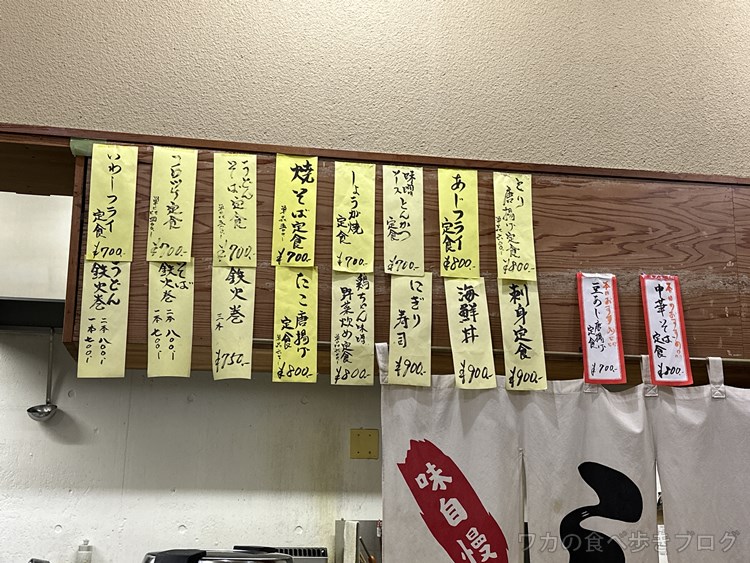 とり
唐揚げ定食
¥800.-
あじフライ
定食
¥800.-
味噌とんかつ
ソース
定食
¥700.-
しょうが焼
定食
¥700.-
焼そば定食
¥700.-
うどん
そば定食
¥700.-
定食
¥700.-
いわしフライ
定食
¥700.-
刺身定食
¥900.-
海鮮丼
¥900.-
にぎり
寿司
¥900.-
鶏ちゃん味噌
野菜炒め定食
¥800.-
たこ唐揚げ
定食
¥800.-
鉄火巻
三本
¥750.-
そば
鉄火巻
二本 八〇〇.-
一本 七〇〇.-
うどん
鉄火巻
二本 八〇〇.-
一本 七〇〇.-
本日のおすすめ
中華そば
定食
¥800.-
本日のおすすめ
豆あじ唐揚げ
定食
¥700.-
味自慢
う
ワカの食べ歩きブログ